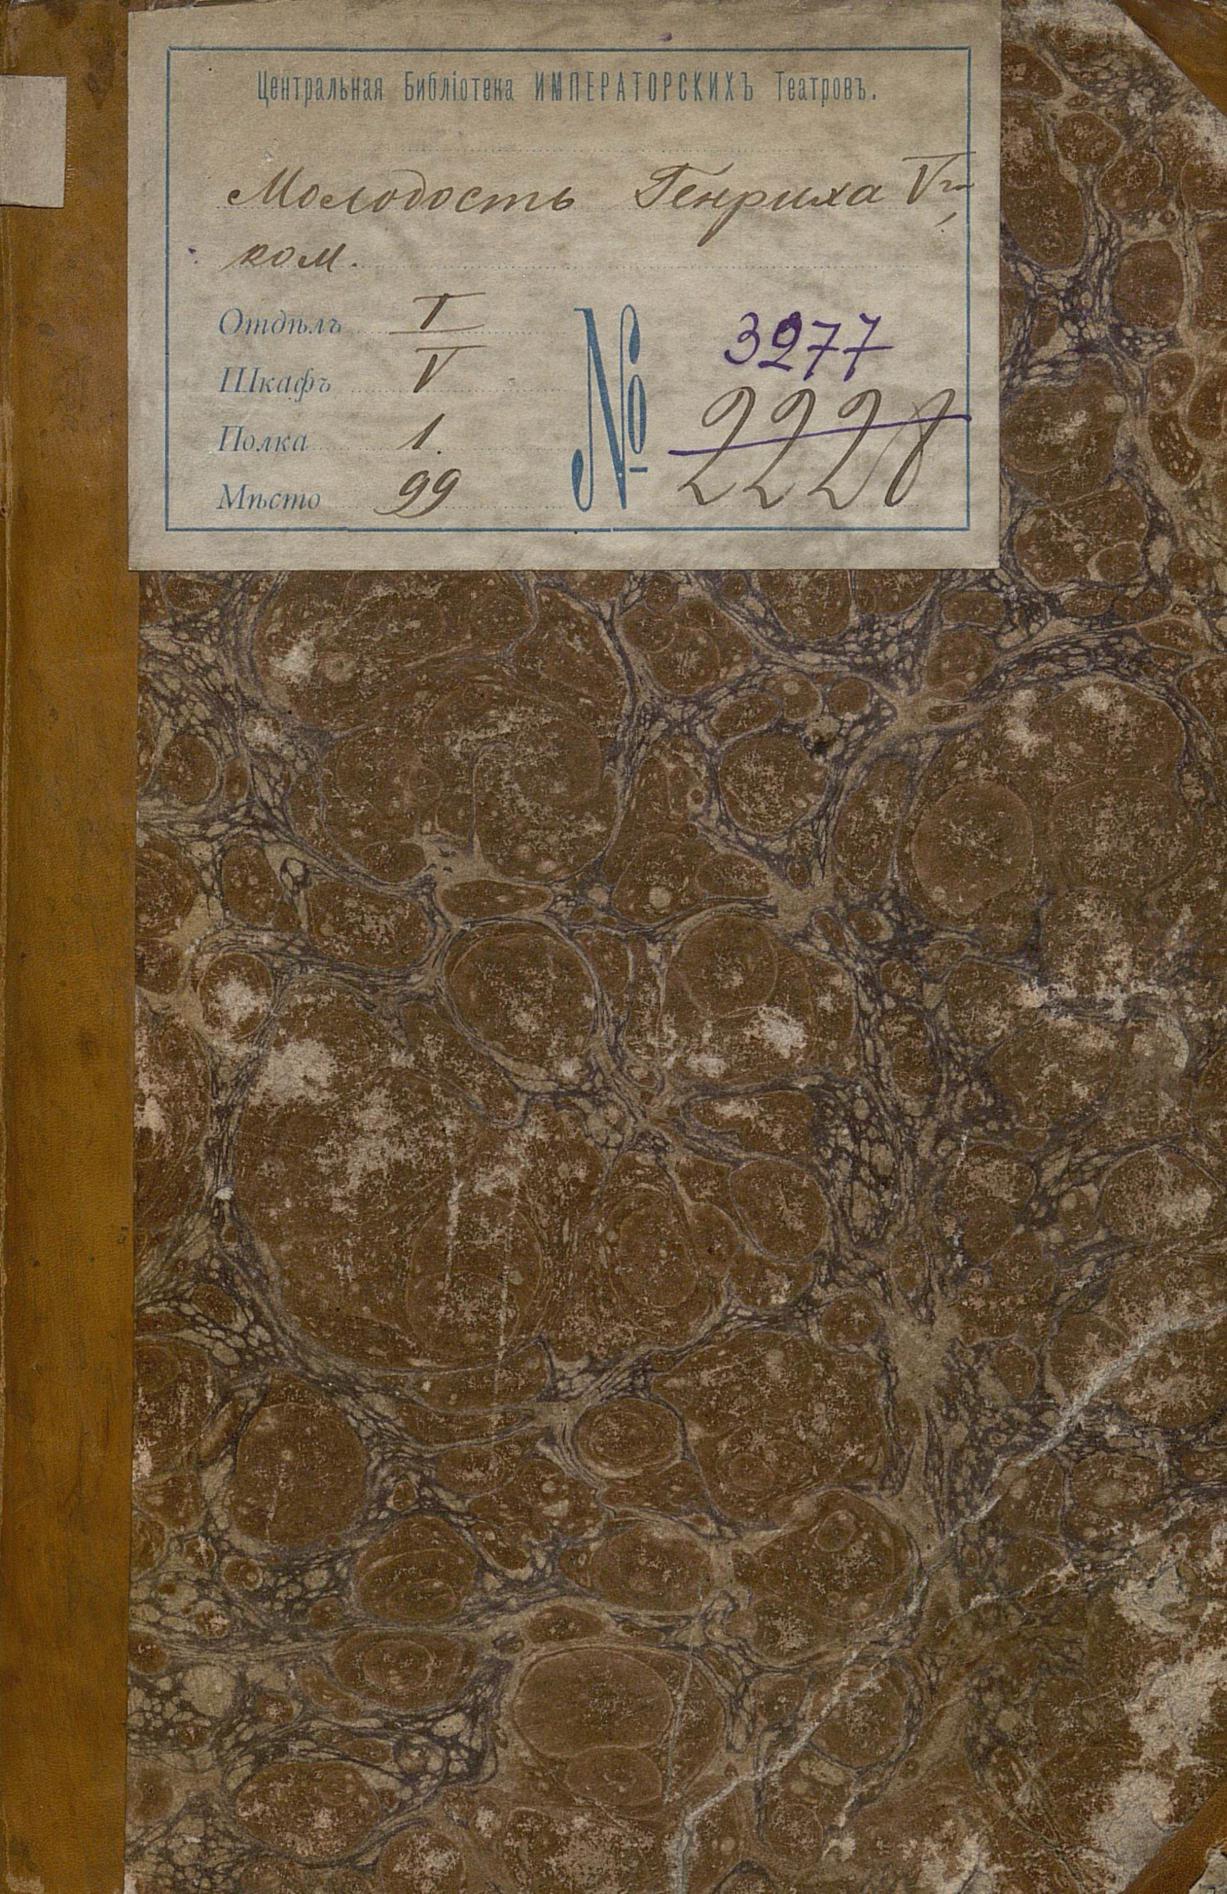 Центральная Библіотека ИМПЕРАТОРСКИХЪ Театровъ.
Молодость Генриха Vго
ком.
Отдѣлъ I
Шкафъ V
Полка 1.
Мѣсто 99
№ 3277
2228